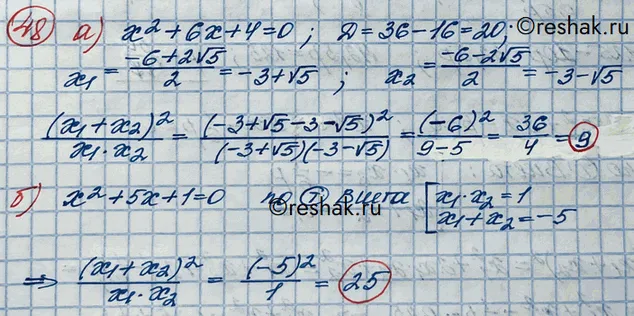 48 а) x² + 6x + 4 = 0 ; Д = 36 − 16 = 20 ;
©reshak.ru
x₁ = (−6 + 2√5)/2 = −3 + √5 ; x₂ = (−6 − 2√5)/2 = −3 − √5
(x₁ + x₂)²/(x₁ · x₂) = (−3 + √5 − 3 − √5)²/((−3 + √5)(−3 − √5)) = (−6)²/(9 − 5) = 36/4 = 9
б) x² + 5x + 1 = 0 по Т Виета [ x₁ · x₂ = 1
x₁ + x₂ = −5
©reshak.ru
⇒ (x₁ + x₂)²/(x₁ · x₂) = (−5)²/1 = 25